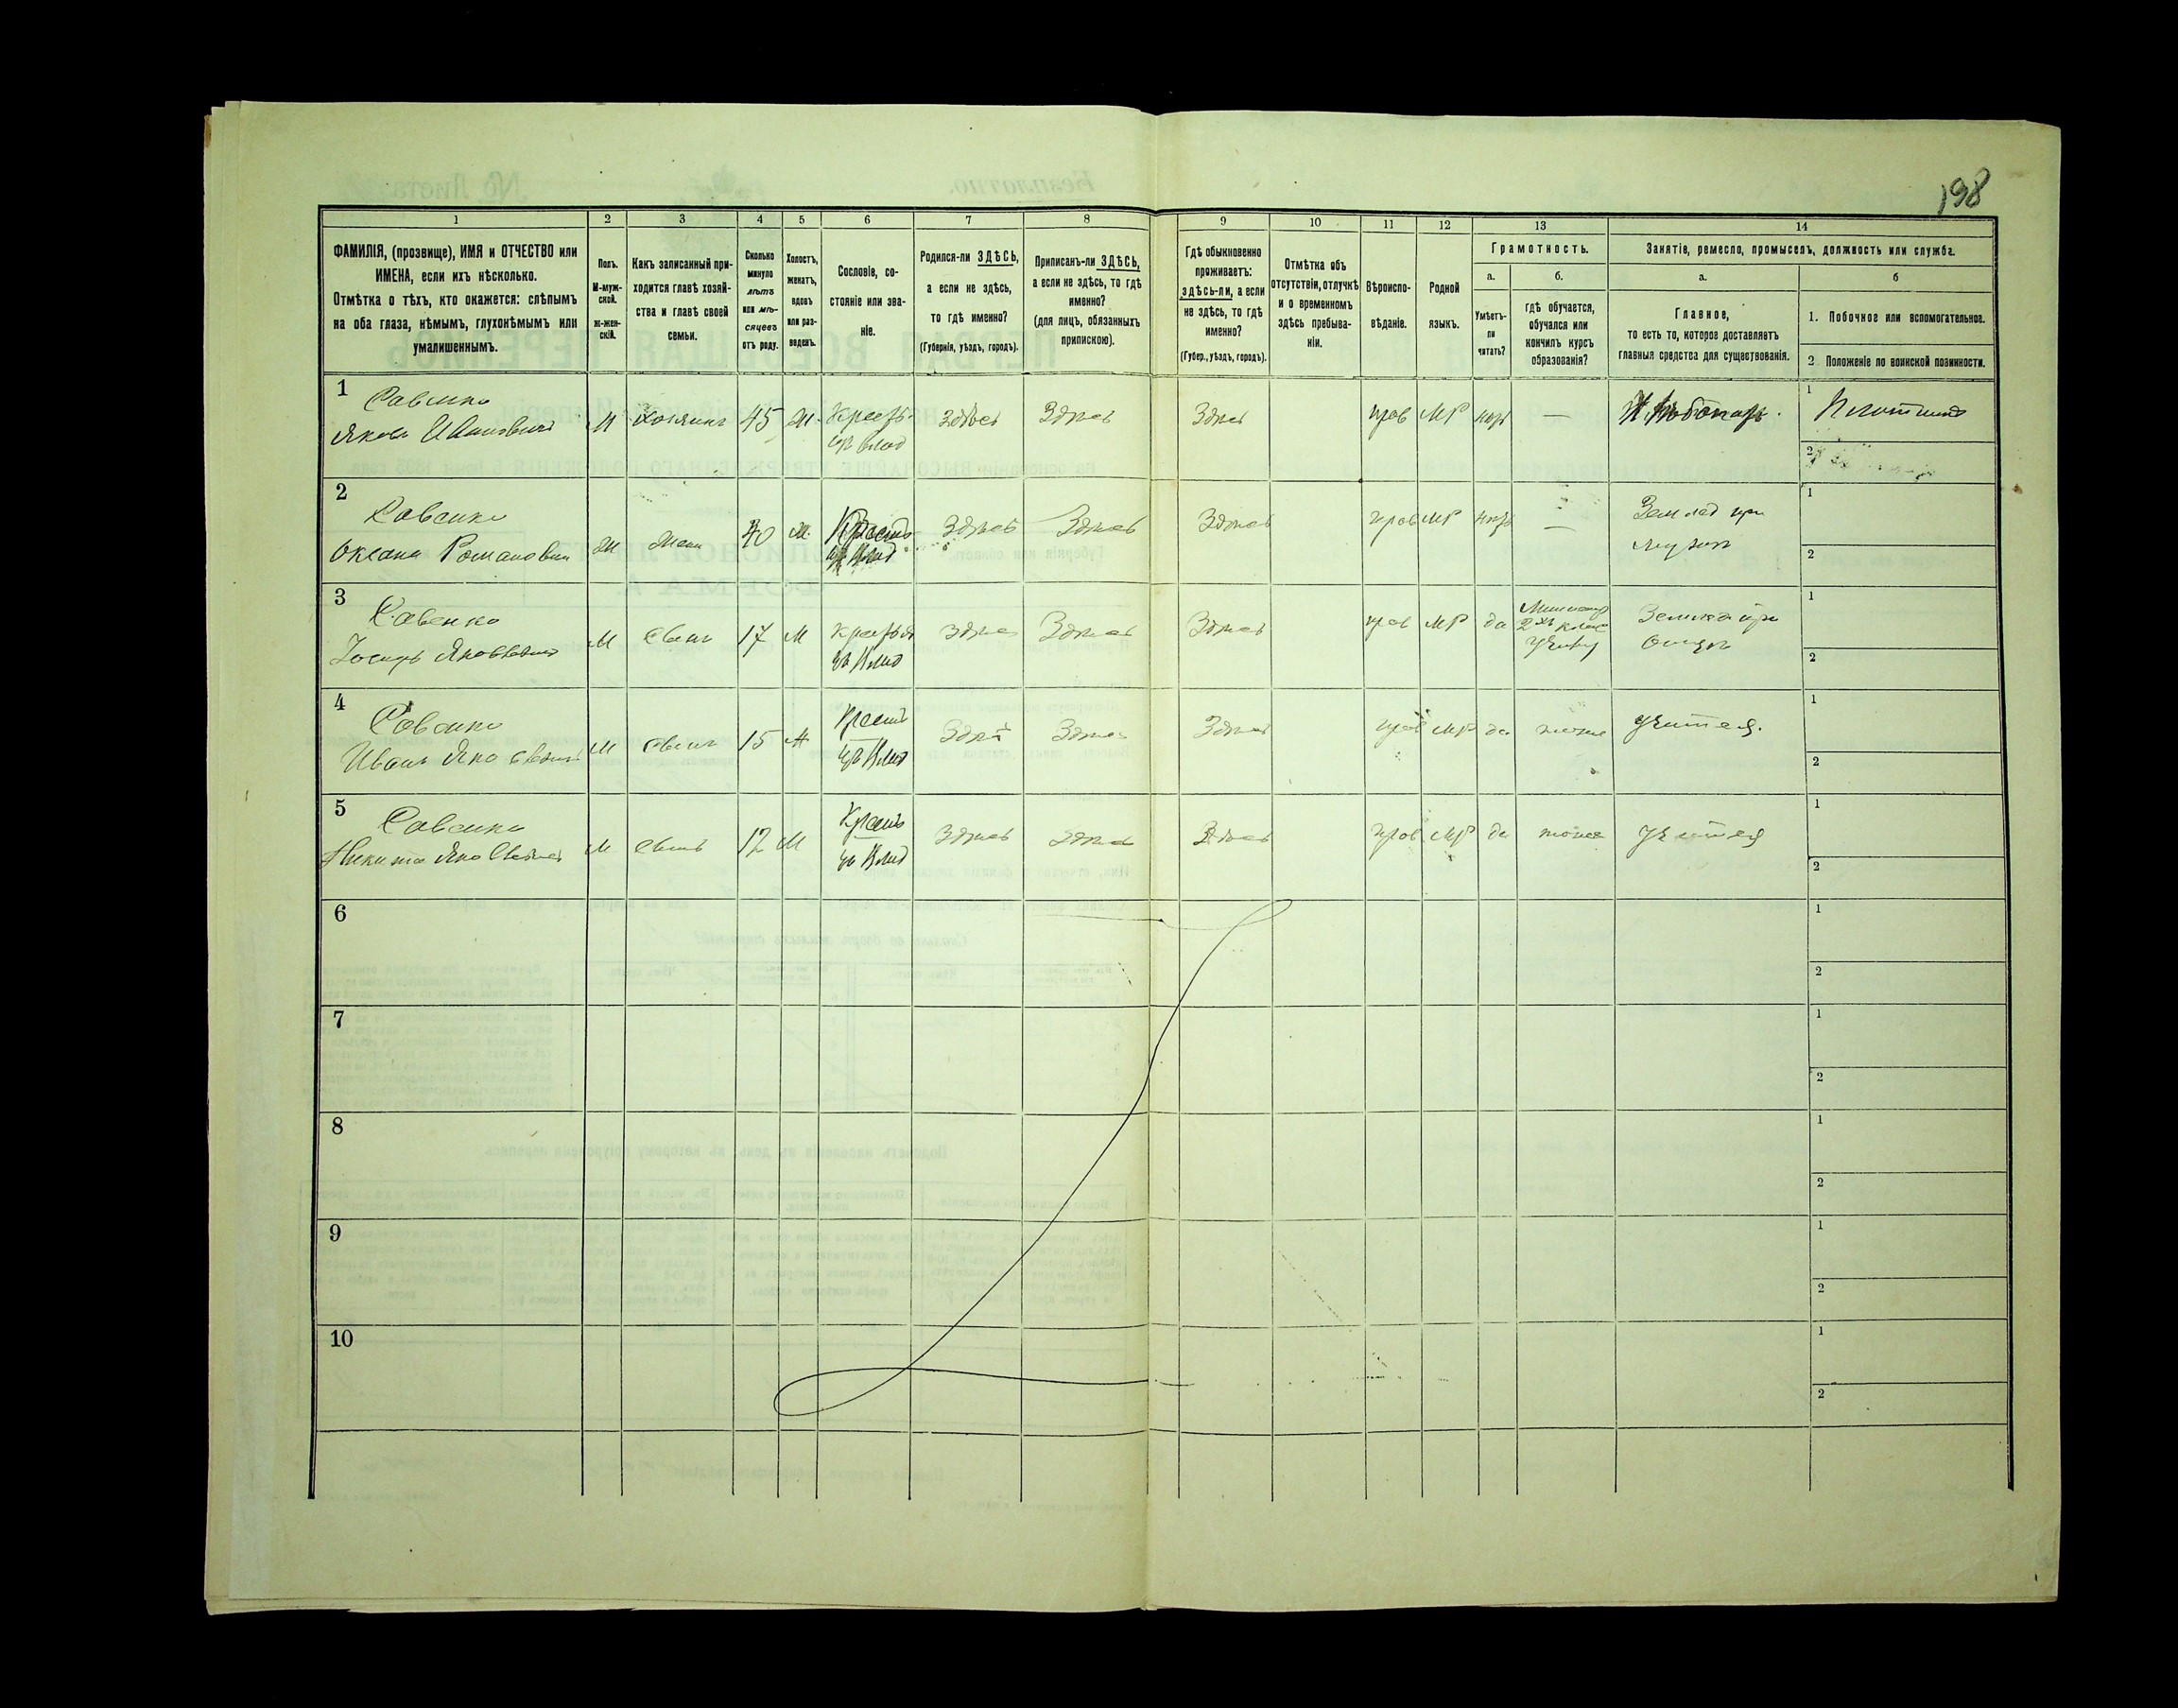 198
1 2 3 4 5 6 7 8 9 10 11 12 13 14
ФАМИЛІЯ, (прозвище), ИМЯ и ОТЧЕСТВО или
ИМЕНА, если ихъ нѣсколько.
Отмѣтка о тѣхъ, кто окажется: слѣпымъ
на оба глаза, нѣмымъ, глухонѣмымъ или
умалишеннымъ.
Полъ.
М-муж-
ской.
ж-жен-
скій.
Какъ записанный при-
ходится главѣ хозяй-
ства и главѣ своей
семьи.
Сколько
минуло
лѣтъ
или мѣ-
сяцевъ
отъ роду.
Холостъ,
женатъ,
вдовъ
или раз-
веденъ.
Сословіе, со-
стояніе или зва-
ніе.
Родился-ли ЗДѢСЬ,
а если не здѣсь,
то гдѣ именно?
(Губернія, уѣздъ, городъ).
Приписанъ-ли ЗДѢСЬ,
а если не здѣсь, то гдѣ
именно?
(для лицъ, обязанныхъ
припискою).
Гдѣ обыкновенно
проживаетъ:
здѣсь-ли, а если
не здѣсь, то гдѣ
именно?
(Губер., уѣздъ, городъ).
Отмѣтка объ
отсутствіи, отлучкѣ
и о временномъ
здѣсь пребыва-
ніи.
Вѣроиспо-
вѣданіе.
Родной
языкъ.
Грамотность.
а.
Умѣетъ-
ли
читать?
б.
гдѣ обучается,
обучался или
кончилъ курсъ
образованія?
Занятіе, ремесло, промыселъ, должность или служба.
а.
Главное,
то есть то, которое доставляетъ
главныя средства для существованія.
б
1. Побочное или вспомогательное.
2 Положеніе по воинской повинности.
1 Савенко
Яковъ Ивановичъ М Хозяинъ 45 Ж Здѣсь Здѣсь Здѣсь прав МР — Хлѣбопаш. 1 Плотникъ
2
2 Савенко
Оксана Романовна Ж Жена 40 Ж Крест Здѣсь Здѣсь Здѣсь прав МР — Землед при 1
мужѣ 2
3 Савенко
Іосифъ Яковлевичъ М сынъ 17 Здѣсь Здѣсь Здѣсь прав МР да 2хъ клас Землед при 1
отцѣ 2
4 Савенко
Иванъ Яковлевичъ М сынъ 15 Крест Здѣсь Здѣсь Здѣсь прав МР да тоже учится. 1
2
5 Савенко
Никита Яковлевичъ М сынъ 12 Крест Здѣсь Здѣсь Здѣсь прав МР да тоже учится 1
2
6 1
2
7 1
2
8 1
2
9 1
2
10 1
2